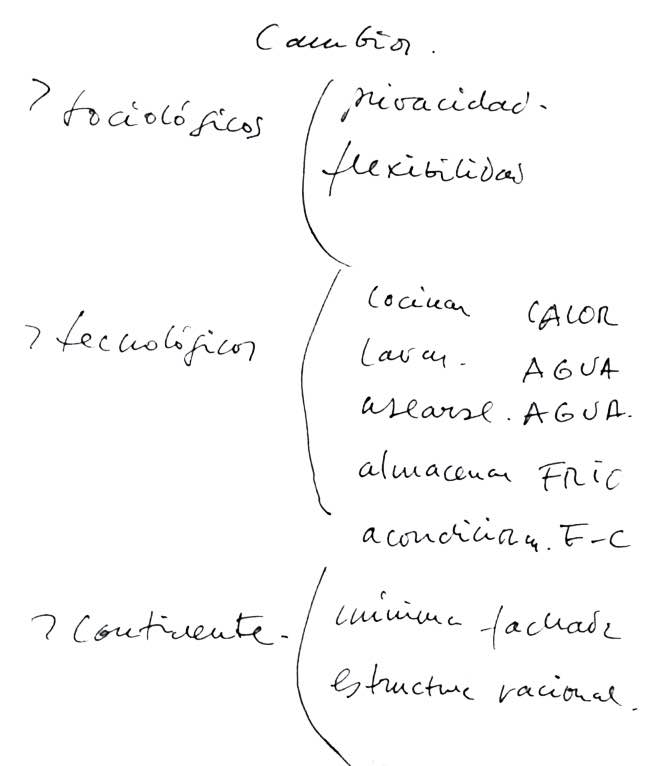 Cambios.
> sociológicos
privacidad.
flexibilidad
> tecnológicos
cocinar CALOR
lavar. AGUA
asearse. AGUA.
almacenar FRIO
acondicionar. F-C
> Continente.
mínima fachada
estructura racional.